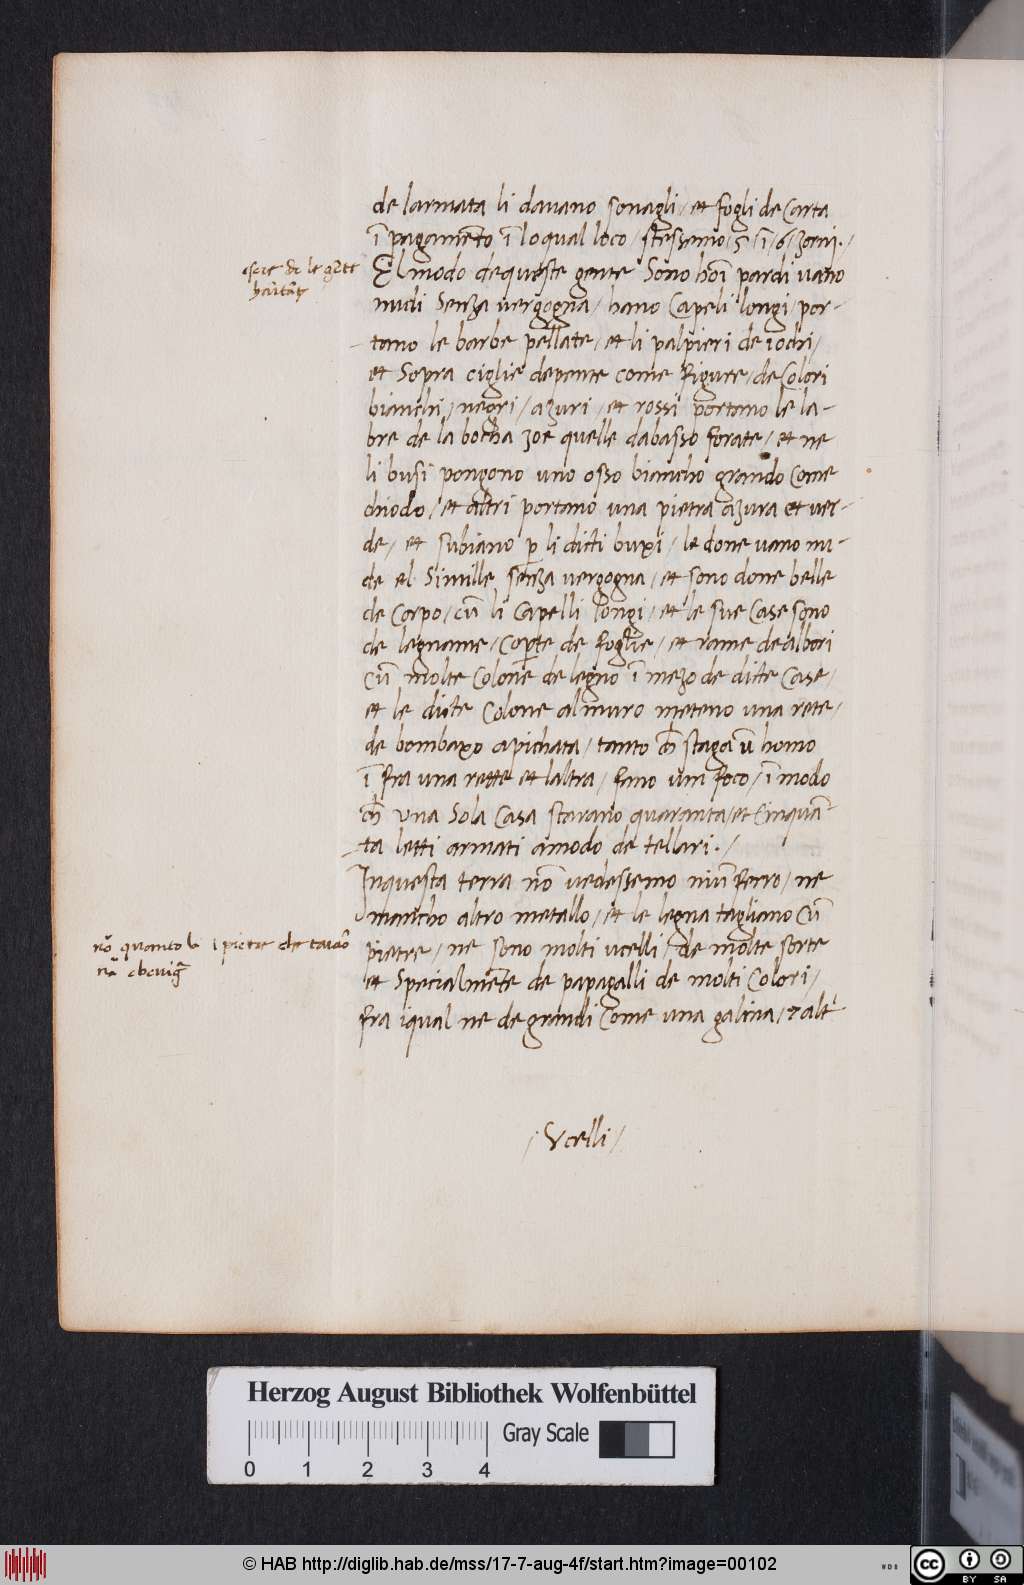 de larmata li davano sonagli / et fogli de Carta
ī pagamēto ī lo qual loco / stessemo / 5 / ī / 6 / zorni . /
El modo de queste gente Sono hoī pardi vano
nudi Senza vergogna / hano Capeli longi / por-
tano le barbe pellate / et li palpieri de iochi /
et Sopra ciglie depente come figure / de Colori
bianchi / negri / azuri / et rossi portano le la-
bre de la bocha zoe quelle dabasso forate / et ne
li busi pongono uno osso biancho grando Come
chiodo / et altri portano una pietra azura et ver-
de / et subiano p̱ li dicti buxi / le done vano nu-
de el Simille senza vergogna / et sono done belle
de Corpo / cū li Capelli longi / et le sue Case sono
de legname / Cop̱te de foglie / et rame de albori
cū molte Colone de legno ī mezo de dicte Case /
et le dicte Colone al muro meteno una rete /
de bombaxo apichata / tanto ch̄ staga ū homo
ī fra una rette et laltra / fano um foco / ī modo
ch̄ una Sola Casa stavano quaranta / et Cinquā-
ta letti armati amodo de tellari . /
Inquesta terra nō vedessemo niū ferro / ne
mancho altro metallo / et le legna tagliano Cū
pietre / ne sono molti ucelli / de molte sorte
et Specialmēte de papagalli de molti Colori /
fra i qual ne de grandi Come una galina / 7 alt'
/ Vcelli /
de le gēte
nō quanto
pietre de
Herzog August Bibliothek Wolfenbüttel
Gray Scale
0 1 2 3 4
© HAB http://diglib.hab.de/mss/17-7-aug-4f/start.htm?image=00102
cc BY SA